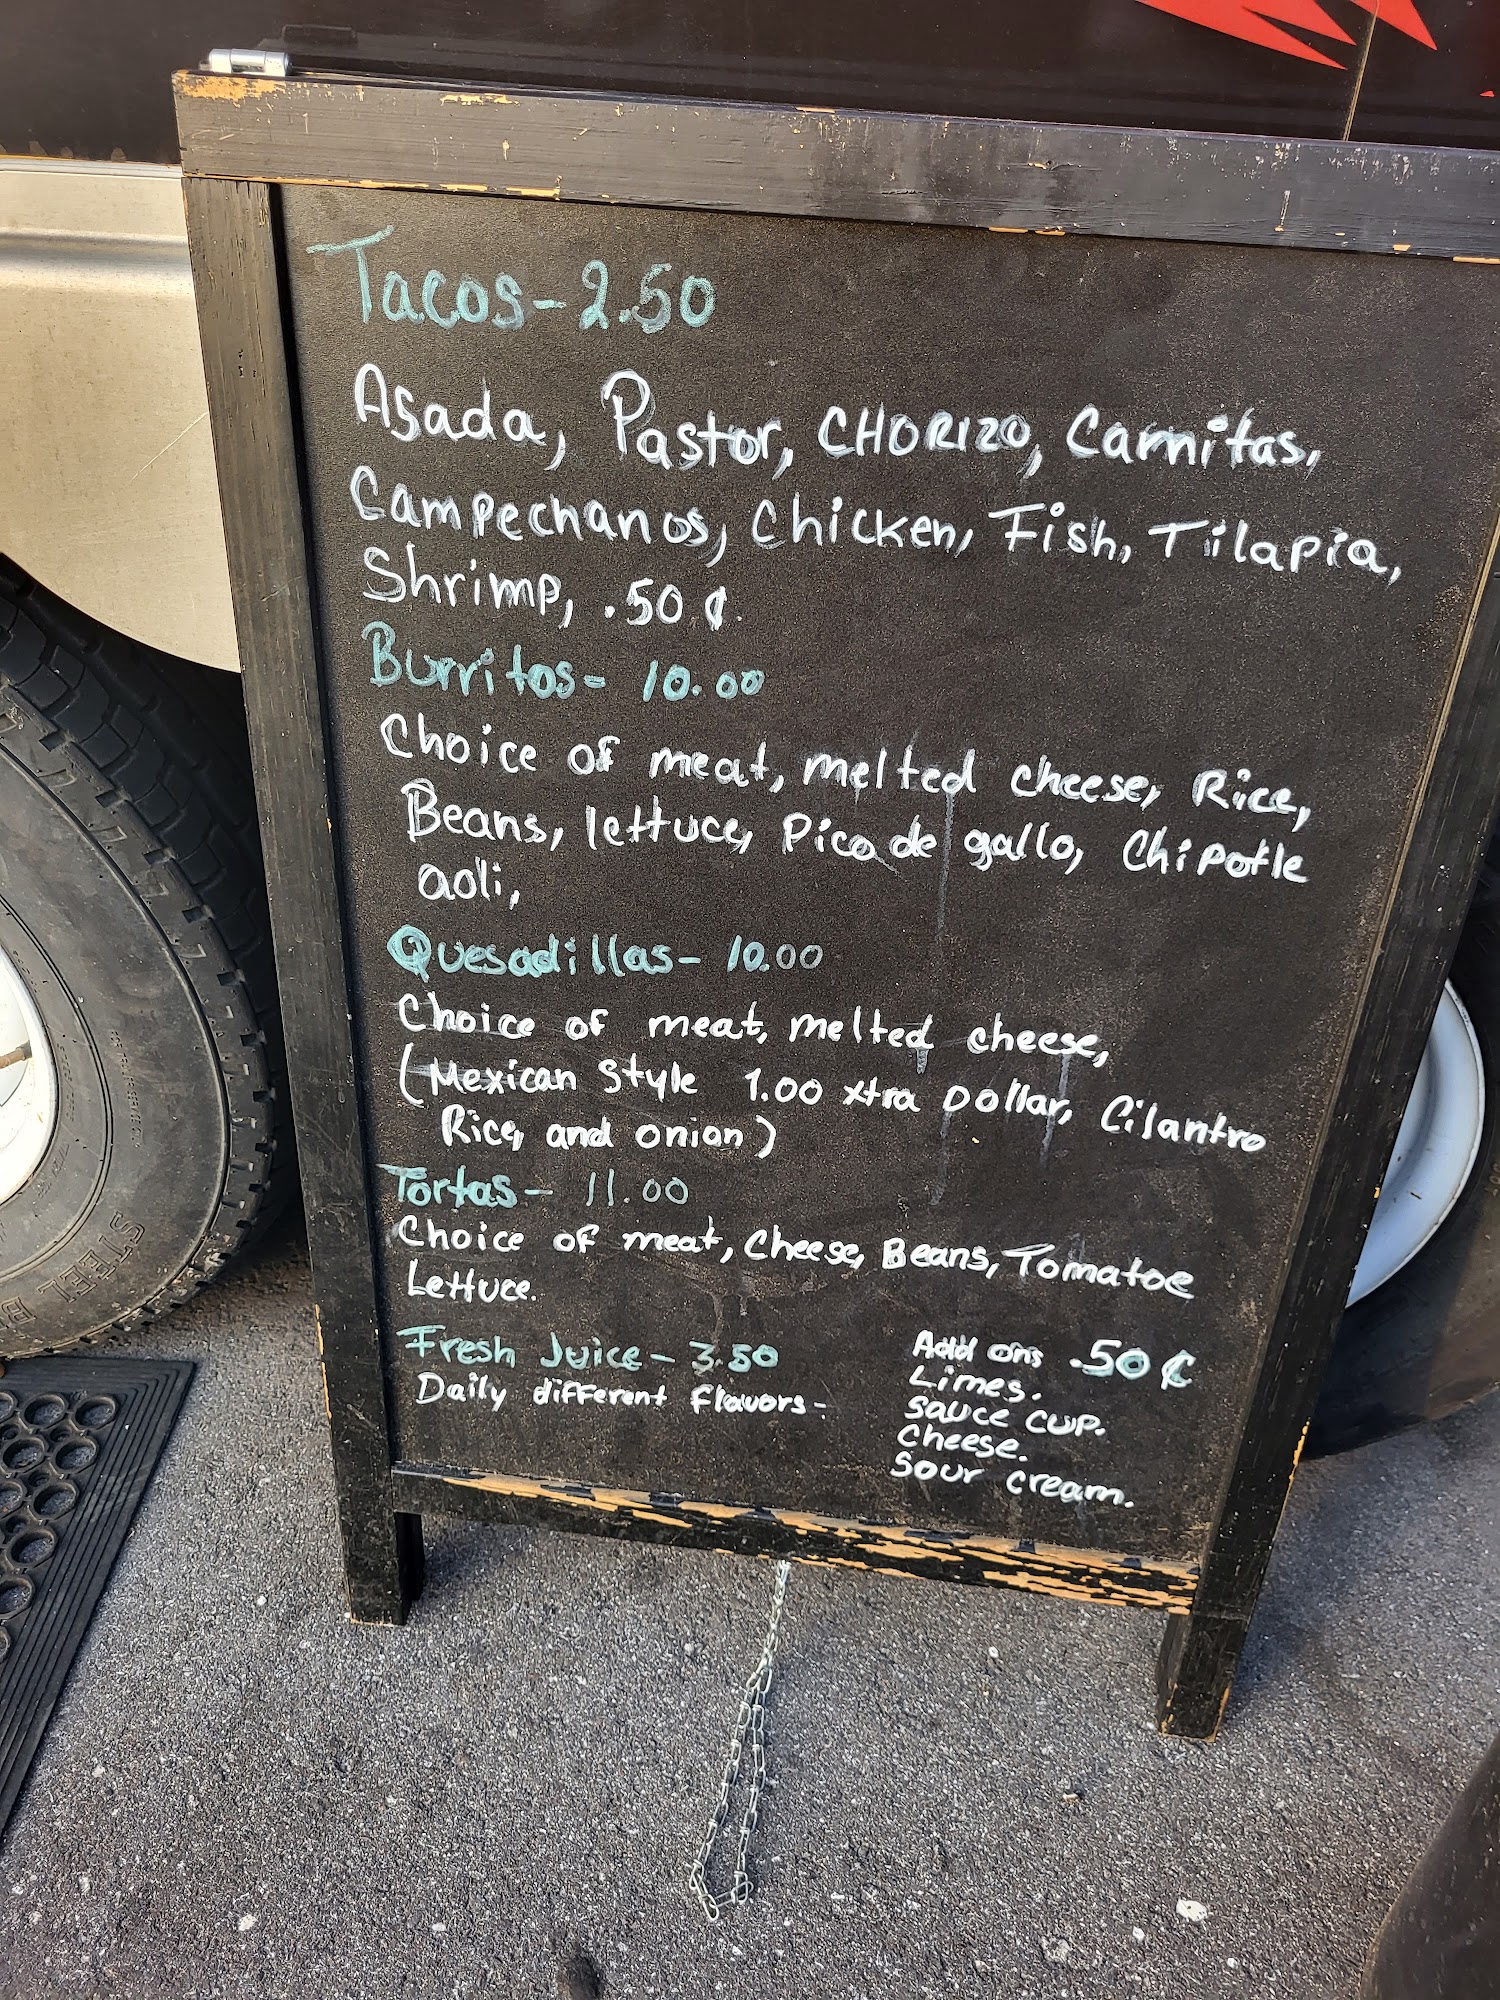 Tacos - 2.50
Asada, Pastor, CHORIZO, Carnitas,
Campechanos, Chicken, Fish, Tilapia,
Shrimp, .50 ¢.
Burritos - 10.00
Choice of meat, melted cheese, Rice,
Beans, lettuce, Pico de gallo, Chipotle
aoli,
Quesadillas - 10.00
Choice of meat, melted cheese,
(Mexican Style 1.00 xtra Dollar, Cilantro
Rice, and onion)
Tortas - 11.00
Choice of meat, Cheese, Beans, Tomatoe
Lettuce.
Fresh Juice - 3.50
Daily different flavors -
Add ons .50 ¢
Limes.
Sauce cup.
Cheese.
Sour cream.
STEEL B